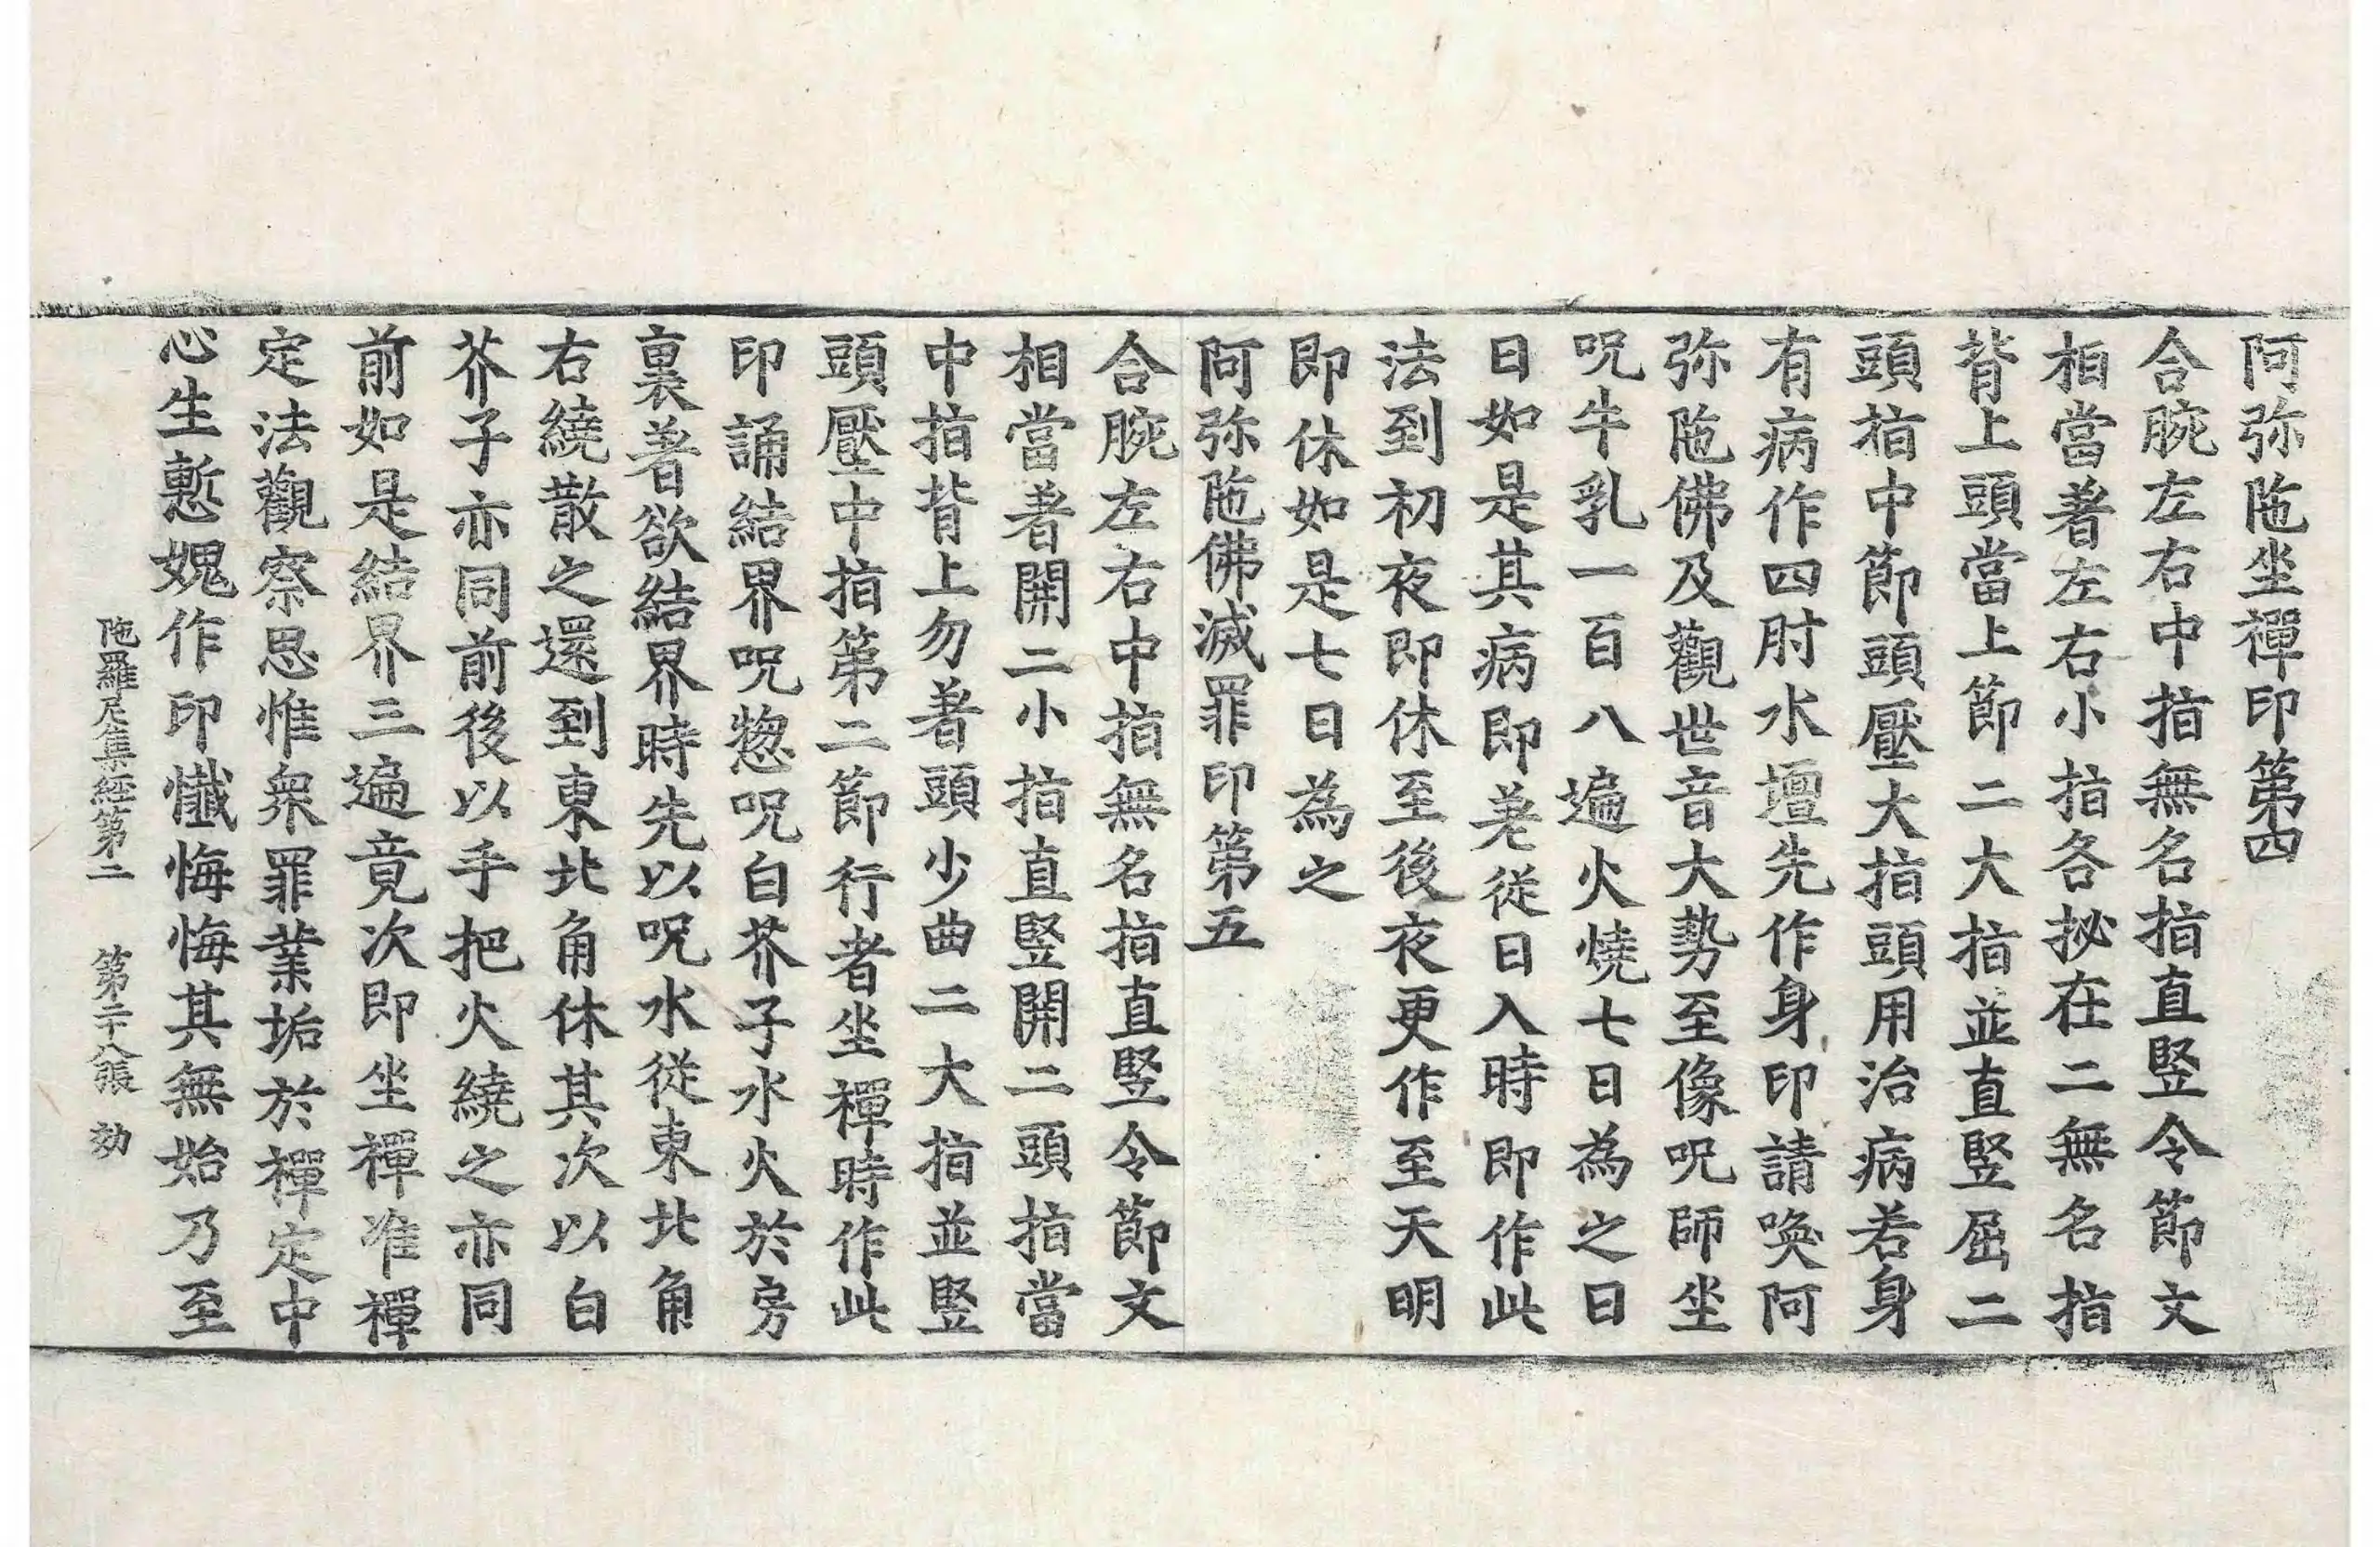 阿弥陁坐禪印第四
合腕左右中指無名指直竪令節文
相當著左右小指各拟在二無名指
背上頭當上節二大指並直竪屈二
頭指中節頭壓大指頭用治病若身
有病作四肘水壇先作身印請喚阿
弥陁佛及觀世音大勢至像呪師坐
呪牛乳一百八遍火燒七日為之日
日如是其病即差從日入時即作此
法到初夜即休至後夜更作至天明
即休如是七日為之
阿弥陁佛滅罪印第五
合腕左右中指無名指直竪令節文
相當著開二小指直竪開二頭指當
中指背上勿著頭少曲二大指並竪
頭壓中指第二節行者坐禪時作此
印誦結界呪惣呪白芥子水火於房
裏著欲結界時先以呪水從東北角
右繞散之還到東北角休其次以白
芥子亦同前後以手把火繞之亦同
前如是結界三遍竟次即坐禪准禪
定法觀察思惟衆罪業垢於禪定中
心生慙媿作印懺悔悔其無始乃至
陁羅尼集經第二　第二十八張　効